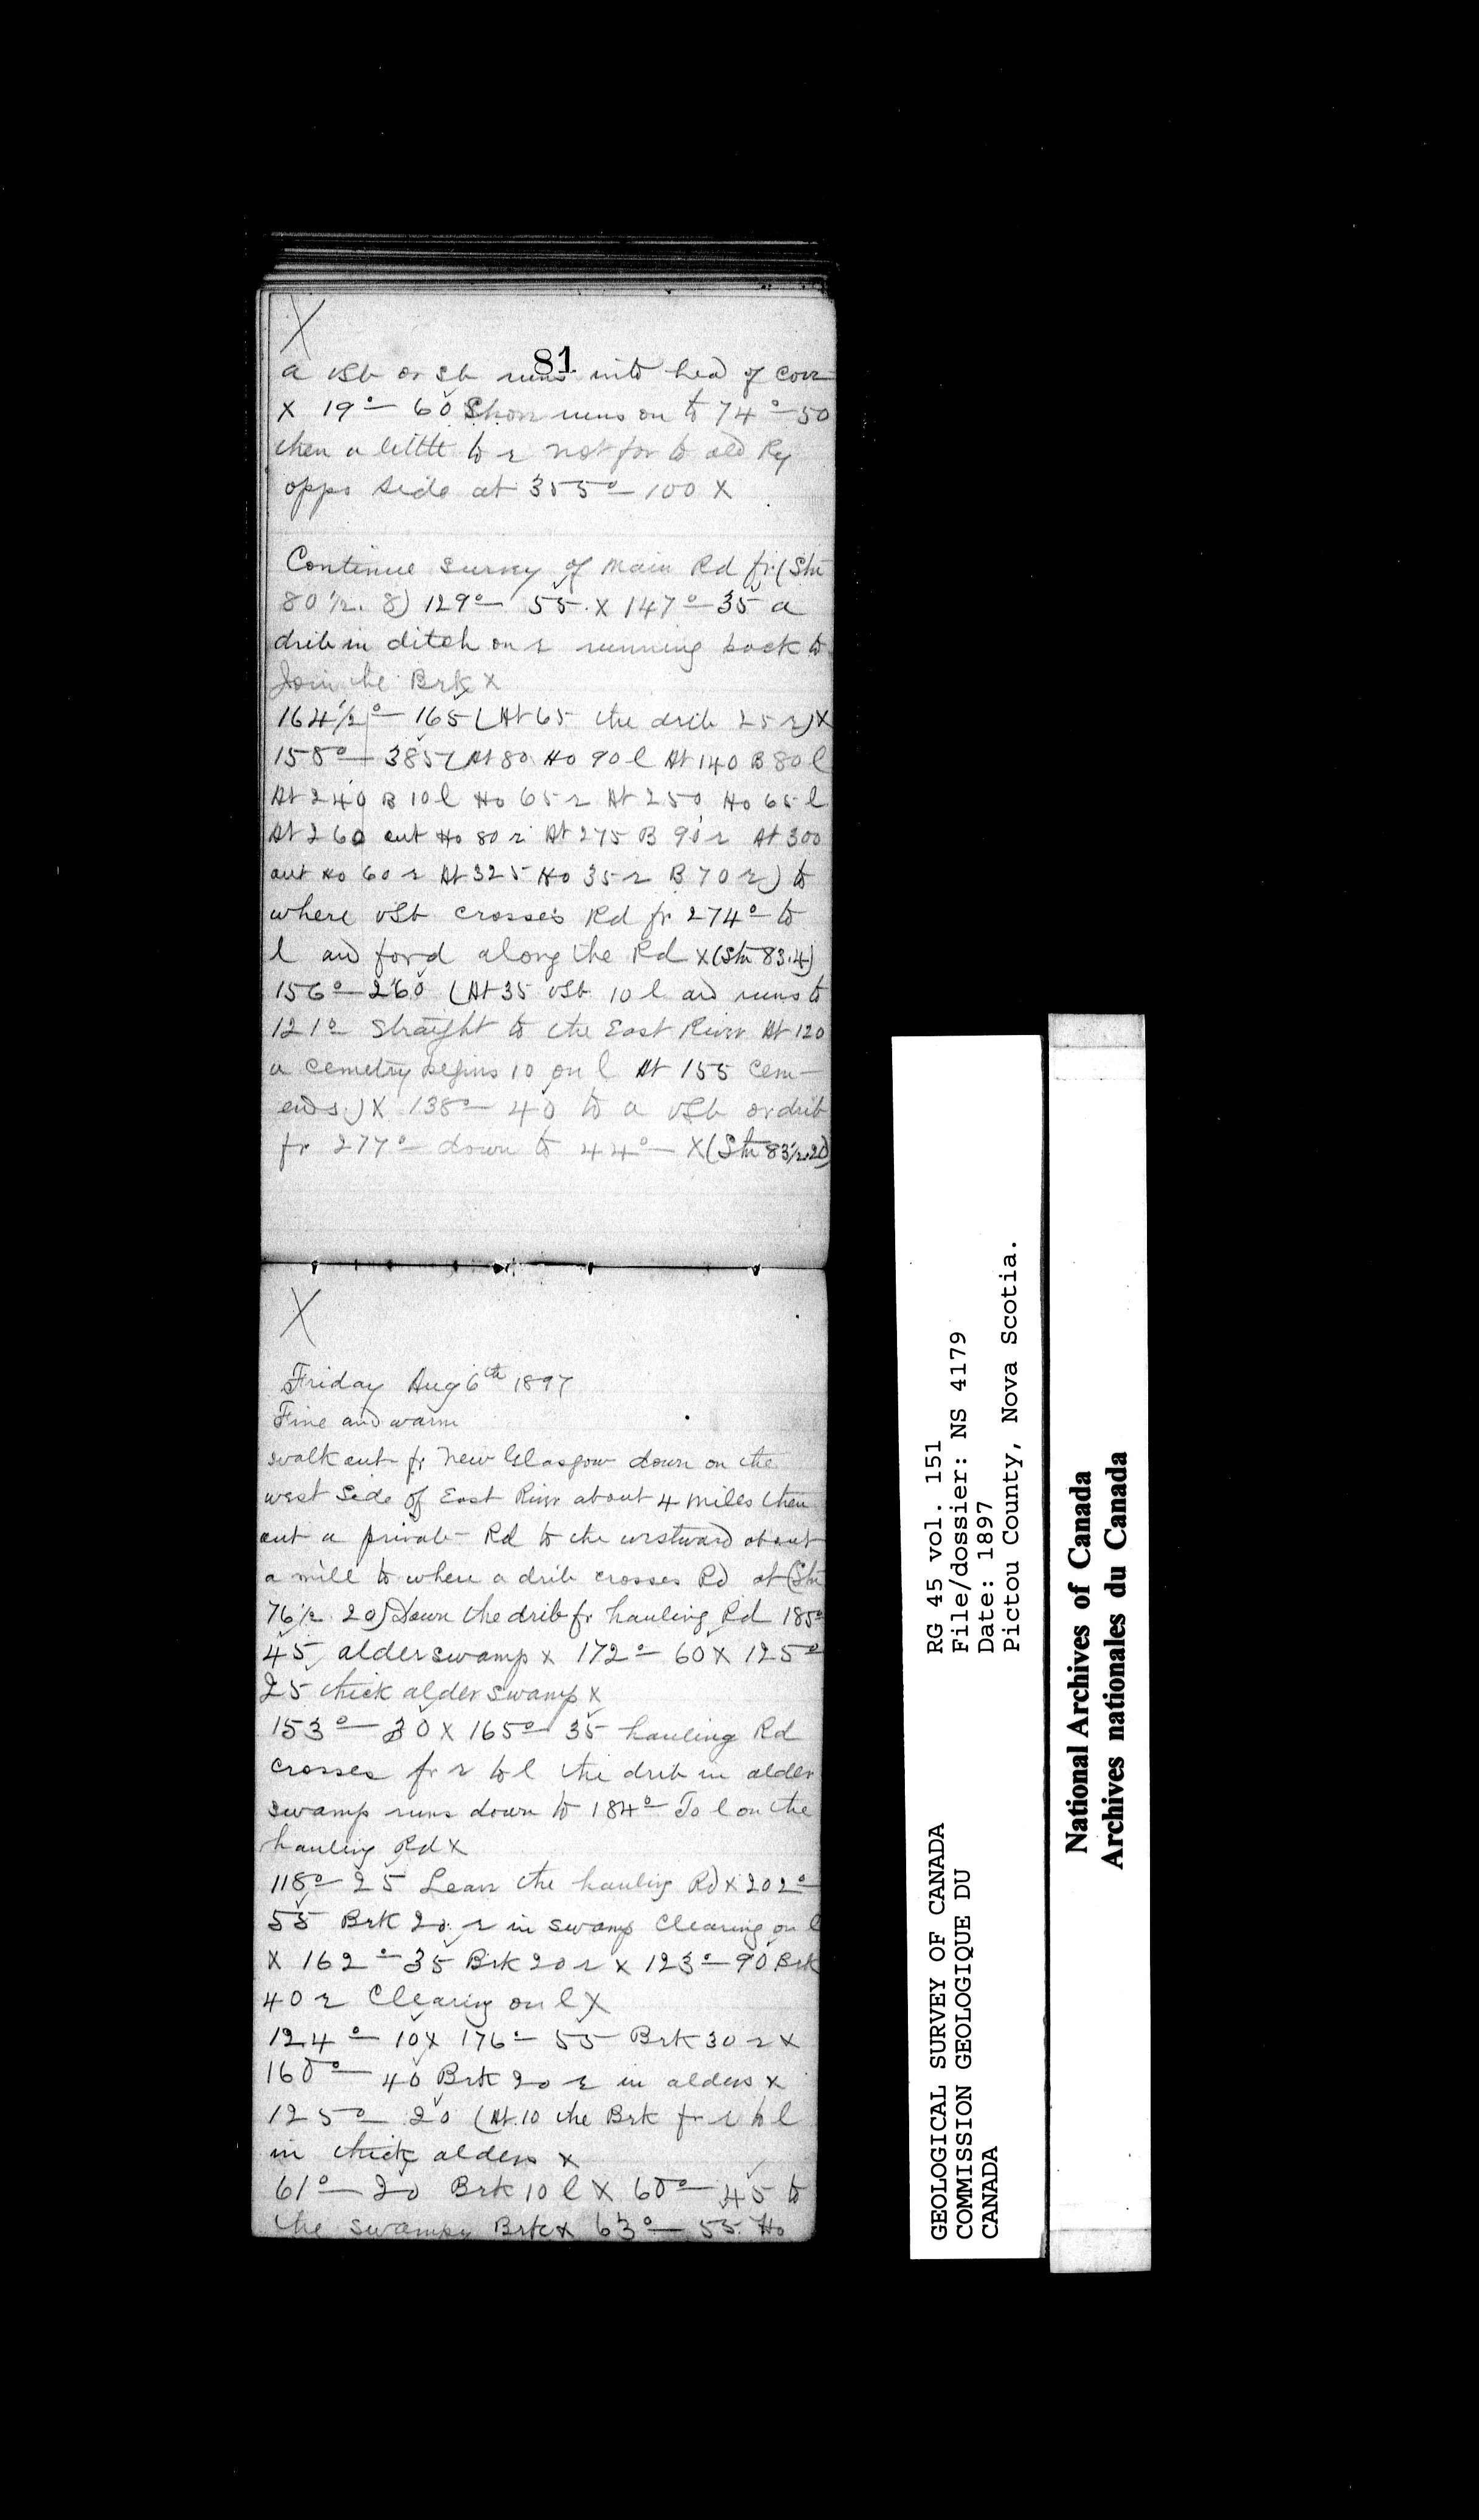 X
81
a vSb or Sb runs into head of cove
X 19° — 60 Shore runs on to 74° — 50
then a little to r not far to old Ry
oppo side at 355° — 100 X
Continue survey of Main Rd fr (Stn
80 1/2. 8) 129° — 55. X 147° — 35 a
drib in ditch on r running back to
Join the Brk X
164 1/2° — 165 (At 65 the drib 25 r) X
158° — 385 (At 80 Ho 90 l At 140 B 80 l
At 240 B 10 l Ho 65 r At 250 Ho 65 l
At 260 out Ho 80 r At 275 B 90 r At 300
out Ho 60 r At 325 Ho 35 r B 70 r) to
where vSb crosses Rd fr 274° — to
l and for'd along the Rd X (Stn 83.4)
156° — 260 (At 35 vSb 10 l and runs to
121° straight to the East River At 120
a cemetry begins 10 on l At 155 Cem —
ends) X 138° — 40 to a vSb or drib
fr 277° — down to 44° — X (Stn 83 1/2.20)
X
Friday Aug 6th 1897
Fine and warm
walk out fr New Glasgow down on the
west side of East River about 4 miles then
out a private Rd to the westward about
a mile to where a drib crosses Rd at (Stn
76 1/2. 20) Down the drib fr hauling Rd 185°
45 alder swamp X 172° — 60 X 125°
25 thick alder swamp X
153° — 30 X 165° — 35 hauling Rd
crosses fr r to l the drib in alder
swamp runs down to 184° — To l on the
hauling Rd X
118° — 25 Leave the hauling Rd X 202° —
55 Brk 20 r in swamp Clearing on l
X 162° — 35 Brk 20 r X 123° — 90 Brk
40 r Clearing on l X
124° — 10 X 176° — 55 Brk 30 r X
160° — 40 Brk 20 r in alders X
125° — 20 (At 10 the Brk fr r to l
in thick alders X
61° — 20 Brk 10 l X 60° — 45 to
the swampy Brk X 63° — 55. Ho
GEOLOGICAL SURVEY OF CANADA
COMMISSION GEOLOGIQUE DU
CANADA
RG 45 vol. 151
File/dossier: NS 4179
Date: 1897
Pictou County, Nova Scotia.
National Archives of Canada
Archives nationales du Canada